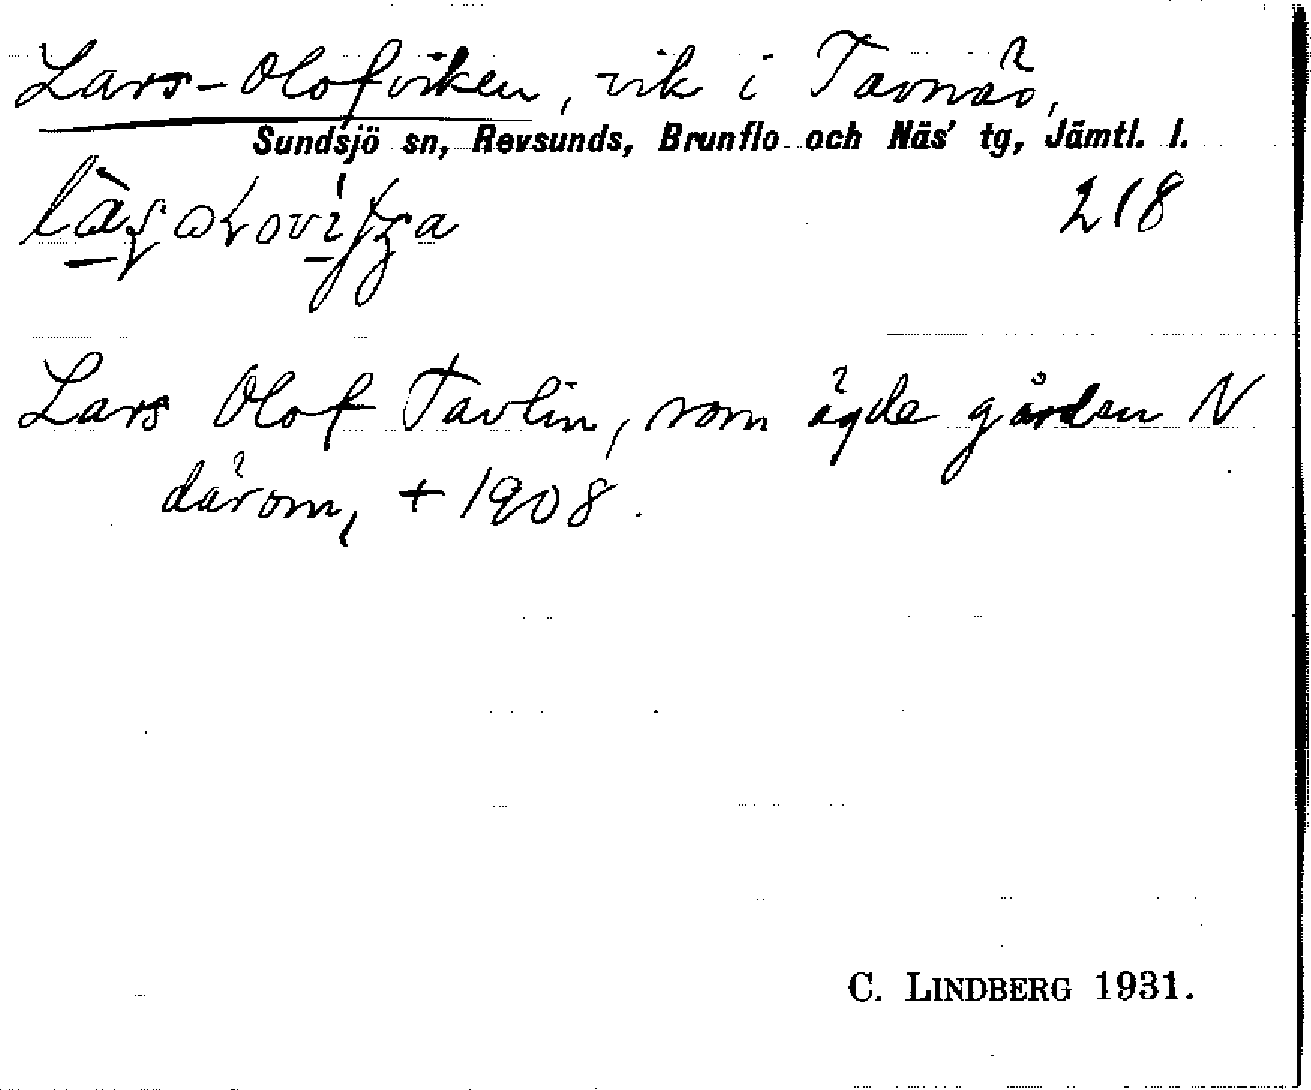 Lars-Olofviken, vik i Tavnäs,
Sundsjö sn, Revsunds, Brunflo och Näs' tg, Jämtl. l.
218
Lars Olof Tavlin, som ägde gården N
därom, + 1908.
C. LINDBERG 1931.